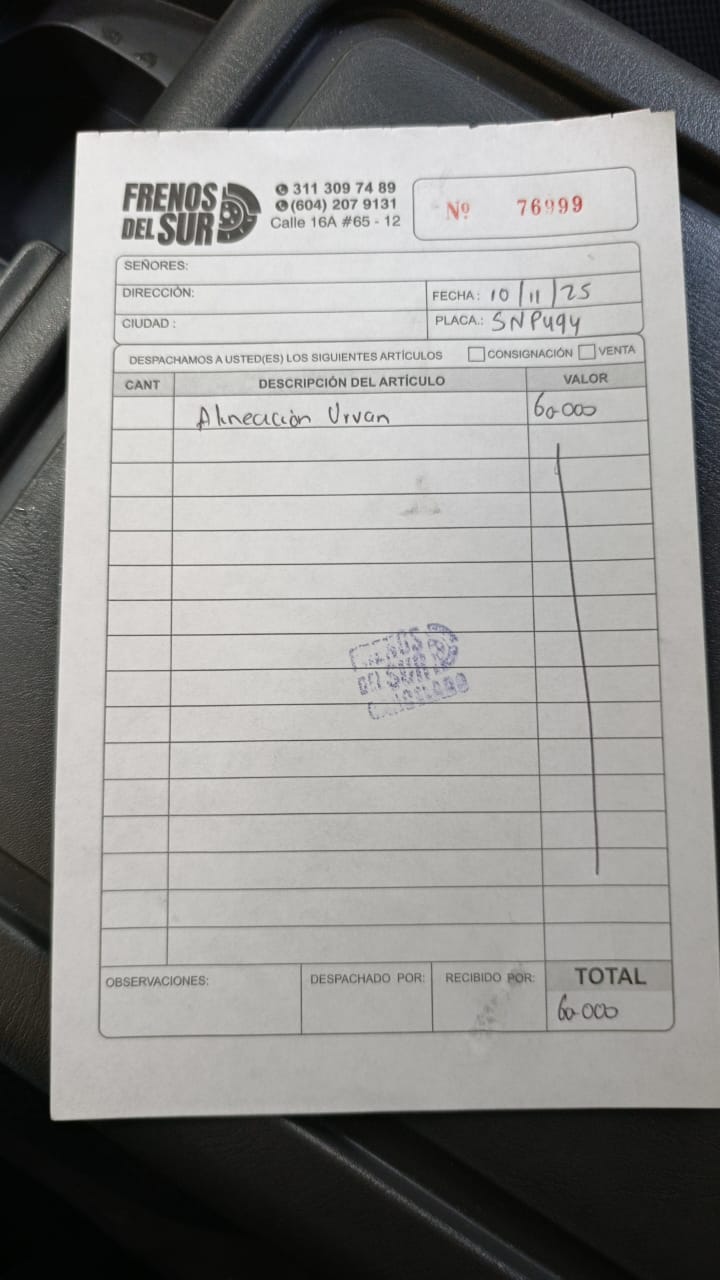 FRENOS
DEL SUR
311 309 74 89
(604) 207 9131
Calle 16A #65 - 12
Nº 76999
SEÑORES:
DIRECCIÓN:
FECHA: 10/11/25
CIUDAD :
PLACA.: SNP494
DESPACHAMOS A USTED(ES) LOS SIGUIENTES ARTÍCULOS CONSIGNACIÓN VENTA
CANT DESCRIPCIÓN DEL ARTÍCULO VALOR
Alineación Urvan 60-000
FRENOS
DEL SUR
CANCELADO
OBSERVACIONES: DESPACHADO POR: RECIBIDO POR: TOTAL
60-000